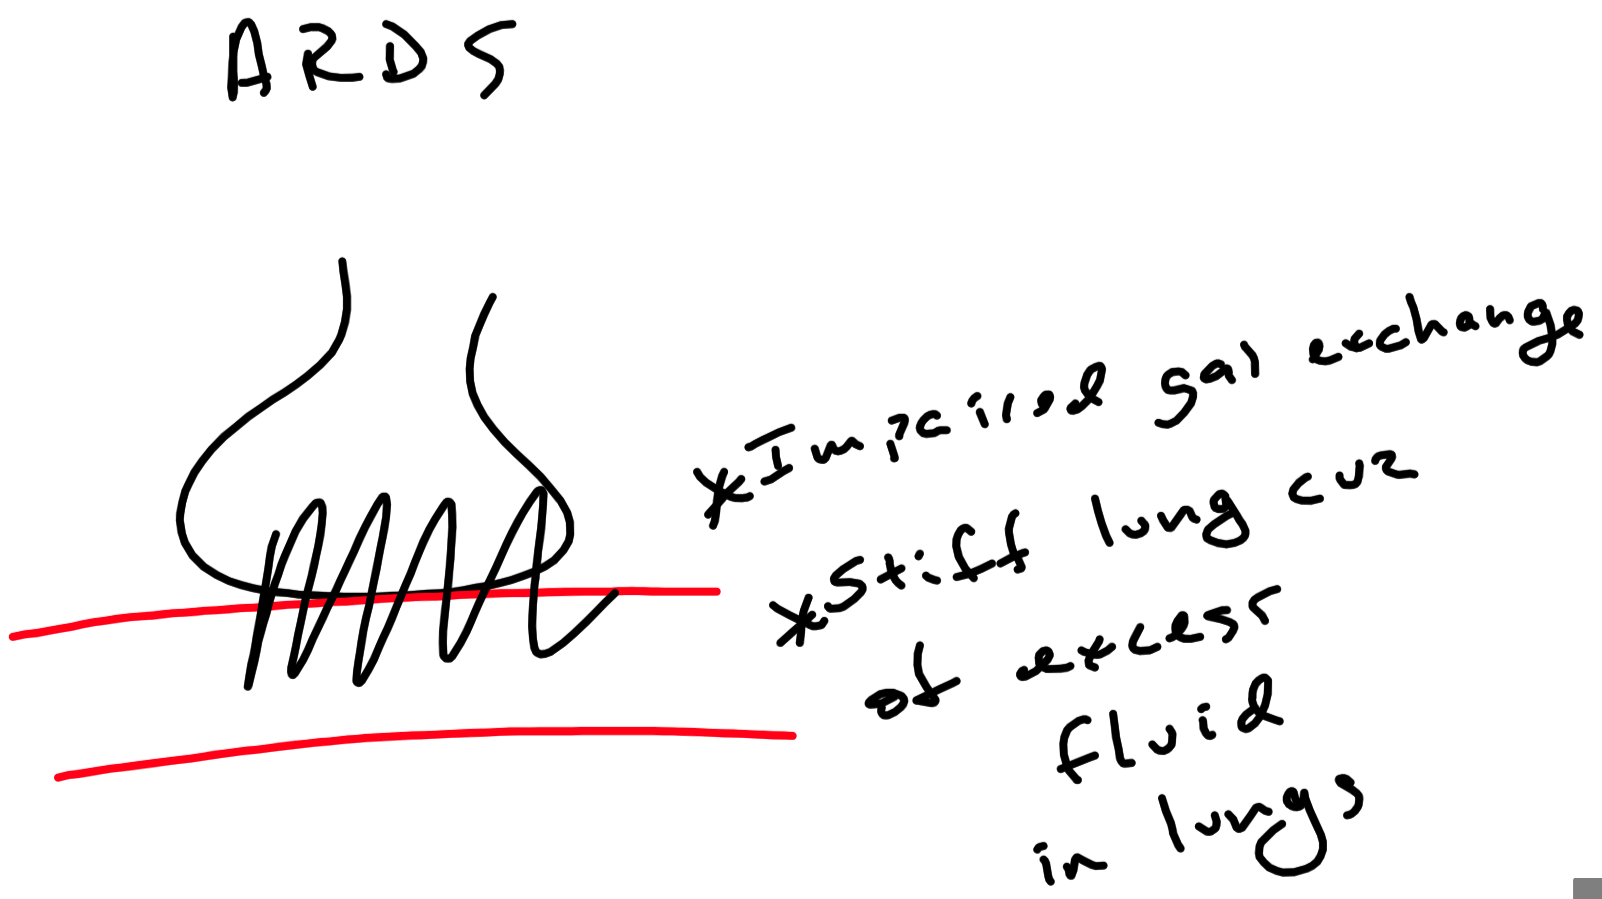 ARDS
*Impaired gas exchange
*Stiff lung cuz
of excess
fluid
in lungs